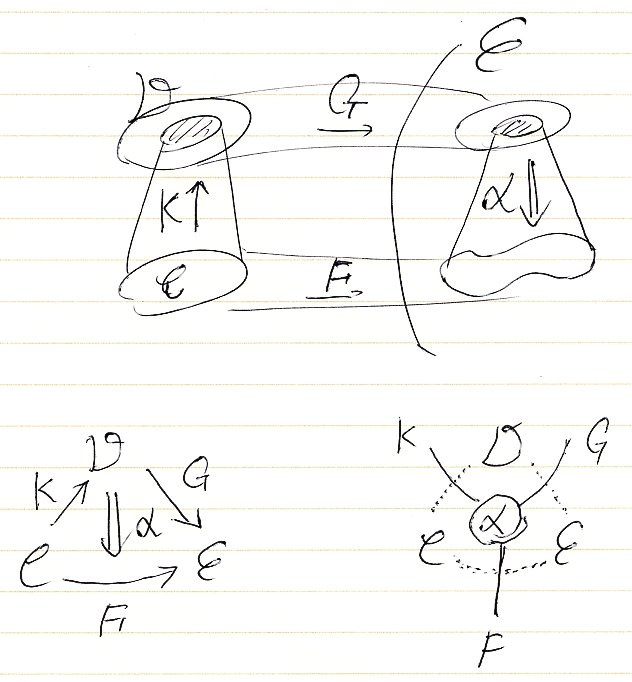 𝓔
𝒟 G
K↑ α⇓
𝒞 F
𝒟
K G
α
𝒞 ℰ
F
K 𝒟 G
α
𝒞 ℰ
F